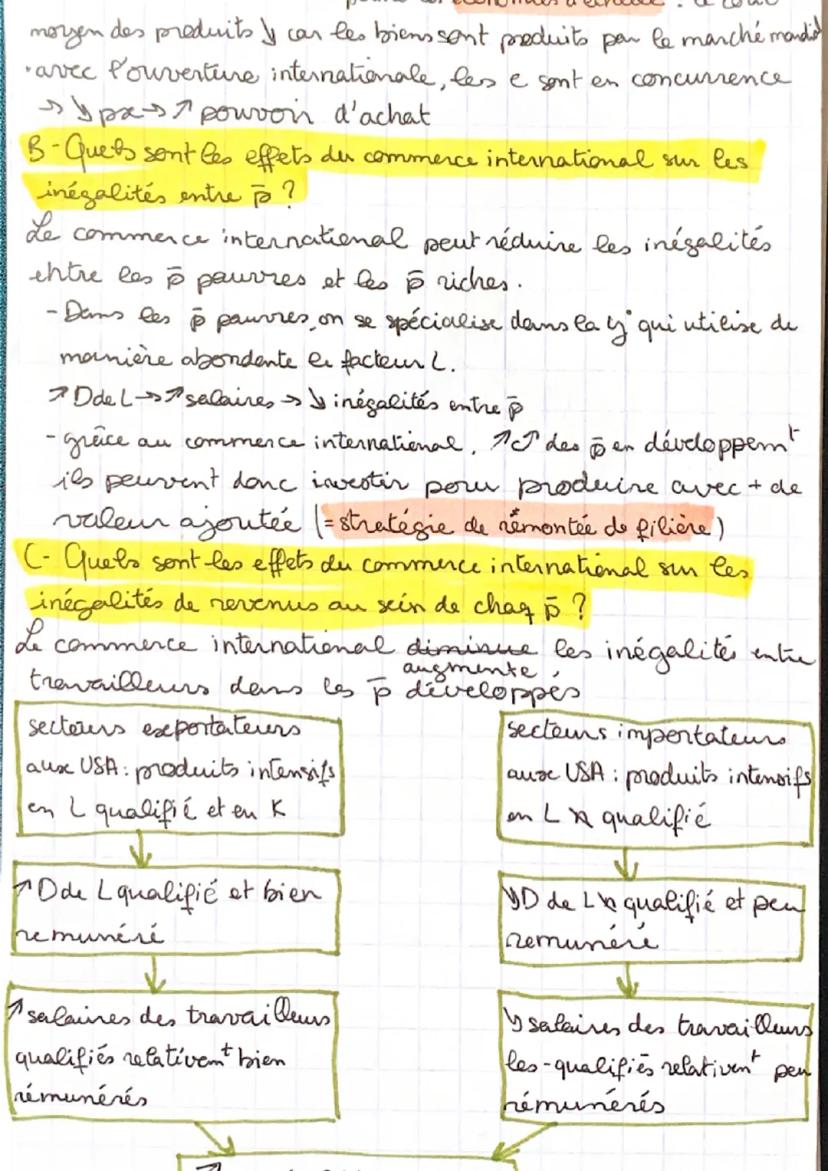 économies d'échelle : le coût
moyen des produits ↘ car les biens sont produits pour le marché mondial
· avec l'ouverture internationale, les e sont en concurrence
→ ↘ px → ↗ pouvoir d'achat
B - Quels sont les effets du commerce international sur les
inégalités entre p̄ ?
Le commerce international peut réduire les inégalités
entre les p̄ pauvres et les p̄ riches.
- Dans les p̄ pauvres, on se spécialise dans la qui utilise de
manière abondente le facteur L.
↗ D de L → ↗ salaires → ↘ inégalités entre p̄
- grâce au commerce international, ↗ des p̄ en développemt
ils peuvent donc investir pour produire avec + de
valeur ajoutée (= stratégie de remontée de filière)
C - Quels sont les effets du commerce international sur les
inégalités de revenus au sein de chaq p̄ ?
Le commerce international diminue les inégalités entre
augmente
travailleurs dans les p̄ développés
secteurs exportateurs
aux USA : produits intensifs
en L qualifié et en K
↗ D de L qualifié et bien
remunéré
↗ salaires des travailleurs
qualifiés relativemt bien
rémunérés
secteurs importateurs
aux USA : produits intensifs
en L qualifié
↘ D de L qualifié et peu
remunéré
↘ salaires des travailleurs
les - qualifiés relativemt peu
rémunérés